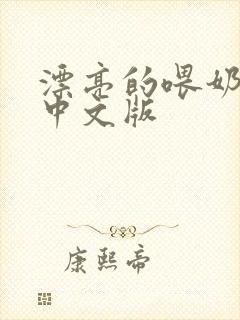 漂亮的喂奶
中文版
康熙帝